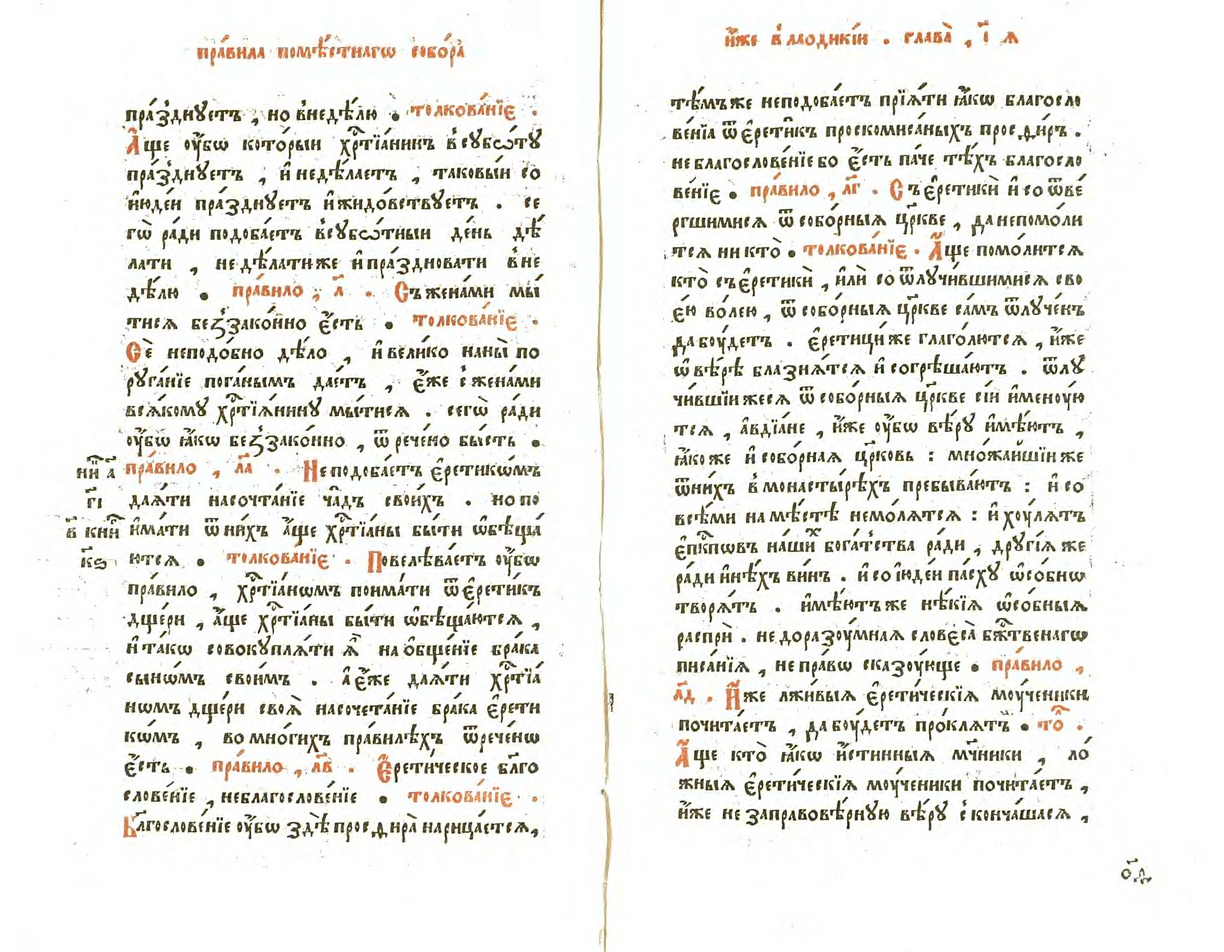 пра́вила помѣ́стнагѡ собо́ра
пра́зднꙋетъ , но внедѣ́лю . толкова́нїе .
А҆́ще ᲂу҆́бѡ кото́рыи хрⷭ҇тїа́нинъ всꙋбѡ́тꙋ
пра́зднꙋетъ , и҆ недѣ́лаетъ , таковы́и со
и҆ꙋде́и пра́зднꙋетъ и҆ жидо́вствꙋетъ . се
гѡ̀ ра́ди подоба́етъ всꙋбѡ́тныи де́нь дѣ́
лати , не дѣ́лати же и҆ пра́здновати вне
дѣ́лю . пра́вило , л҃ . Съ жена́ми мы́
тисѧ беззако́нно є҆́сть . толкова́нїе .
Сѐ неподо́бно дѣ́ло , и҆ вели́ко на ны̀ по
рꙋга́нїе пога́нымъ дае́тъ , є҆́же с жена́ми
всѧ́комꙋ хрⷭ҇тїѧ́нинꙋ мы́тисѧ . сегѡ̀ ра́ди
ᲂу҆́бѡ ꙗ҆́кѡ беззако́нно , ѿрече́но бы́сть .
пра́вило , л҃а . Не подоба́етъ є҆ретикѡ́мъ
даѧ́ти на сочта́нїе ча́дъ свои́хъ . но по
и҆ма́ти ѿ ни́хъ а҆́ще хрⷭ҇тїа́ны бы́ти ѡ҆бѣща́
ютсѧ . толкова́нїе . Повелѣва́етъ ᲂу҆́бѡ
пра́вило , хрⷭ҇тїа́нѡмъ поима́ти ѿ є҆рети́къ
дще́ри , а҆́ще хрⷭ҇тїа́ны бы́ти ѡ҆бѣща́ютсѧ ,
и҆ та́кѡ совокꙋплѧ́ти ѧ҆̀ на ѻ҆бще́нїе бра́ка
сынѡ́мъ свои́мъ . а҆ є҆́же даѧ́ти хрⷭ҇тїа́
нѡмъ дще́ри своѧ̀ на сочета́нїе бра́ка є҆рети
кѡ́мъ , во мно́гихъ пра́вилѣхъ ѿрече́нѡ
є҆́сть . пра́вило , л҃в . Є҆рети́ческое бл҃го
слове́нїе , не благослове́нїе . толкова́нїе .
Благослове́нїе ᲂу҆́бѡ здѣ̀ просѳира̀ нарица́етсѧ,
ни҃ и҃ а҃
г҃і
в҃ кни҃
к҃ѕ
и҆́же в лаодикі́и . глава̀ , і҃ѧ
тѣ́мъ же не подоба́етъ прїѧ́ти ꙗ҆́кѡ благосло
ве́нїѧ ѿ є҆рети́къ проскомиса́ныхъ просѳи́ръ .
не благослове́нїе бо є҆́сть па́че тѣ́хъ благосло
ве́нїе . пра́вило , л҃г . Съ є҆ретикѝ и҆ со ѿве́
ргшимисѧ ѿ собо́рныѧ цр҃кве , да не помо́ли
тсѧ ни кто̀ . толкова́нїе . А҆́ще помо́литсѧ
кто̀ съ є҆ретикѝ , и҆лѝ со ѿлꙋчи́вшимисѧ сво
є҆́ю во́лею , ѿ собо́рныѧ цр҃кве са́мъ ѿлꙋче́нъ
да бꙋ́детъ . є҆ретицы́ же глаго́лютсѧ , и҆́же
ѡ҆ вѣ́рѣ блазнѧ́тсѧ и҆ согрѣша́ютъ . ѿлꙋ
чи́вшїи же сѧ ѿ собо́рныѧ цр҃кве сі́и и҆менꙋ́ю
тсѧ , а҆вдїа́не , и҆́же ᲂу҆́бѡ вѣ́рꙋ и҆мѣ́ютъ ,
ꙗ҆́ко же и҆ собо́рная цр҃ковь : мно́жайшїи же
ѿ ни́хъ в монастырѣ́хъ пребыва́ютъ : и҆ со
все́ми на мѣ́стѣ не мо́лѧтсѧ : и҆ хꙋ́лѧтъ
є҆пⷭ҇кпѡвъ на́шихъ бога́тства ра́ди , дрꙋгі́ѧ же
ра́ди и҆нѣ́хъ ви́нъ . и҆ со и҆ꙋде́и па́схꙋ ѡ҆со́бнѡ
творѧ́тъ . и҆мѣ́ютъ же нѣ́кїѧ ѡ҆со́бныѧ
распрѝ . не до разꙋ́мная словеса̀ бж҃твенагѡ
писа́нїѧ , не пра́вѡ сказꙋ́юще . пра́вило ,
л҃д . И҆́же лжи́выѧ є҆рети́ческїѧ мꙋ́ченики
почита́етъ , да бꙋ́детъ про́клѧтъ . то҃ .
А҆́ще кто̀ ꙗ҆́кѡ и҆́стинныѧ мч҃ники , ло́
жныѧ є҆рети́ческїѧ мꙋ́ченики почита́етъ ,
и҆́же не за правовѣ́рнꙋю вѣ́рꙋ сконча́шасѧ ,
о҃д